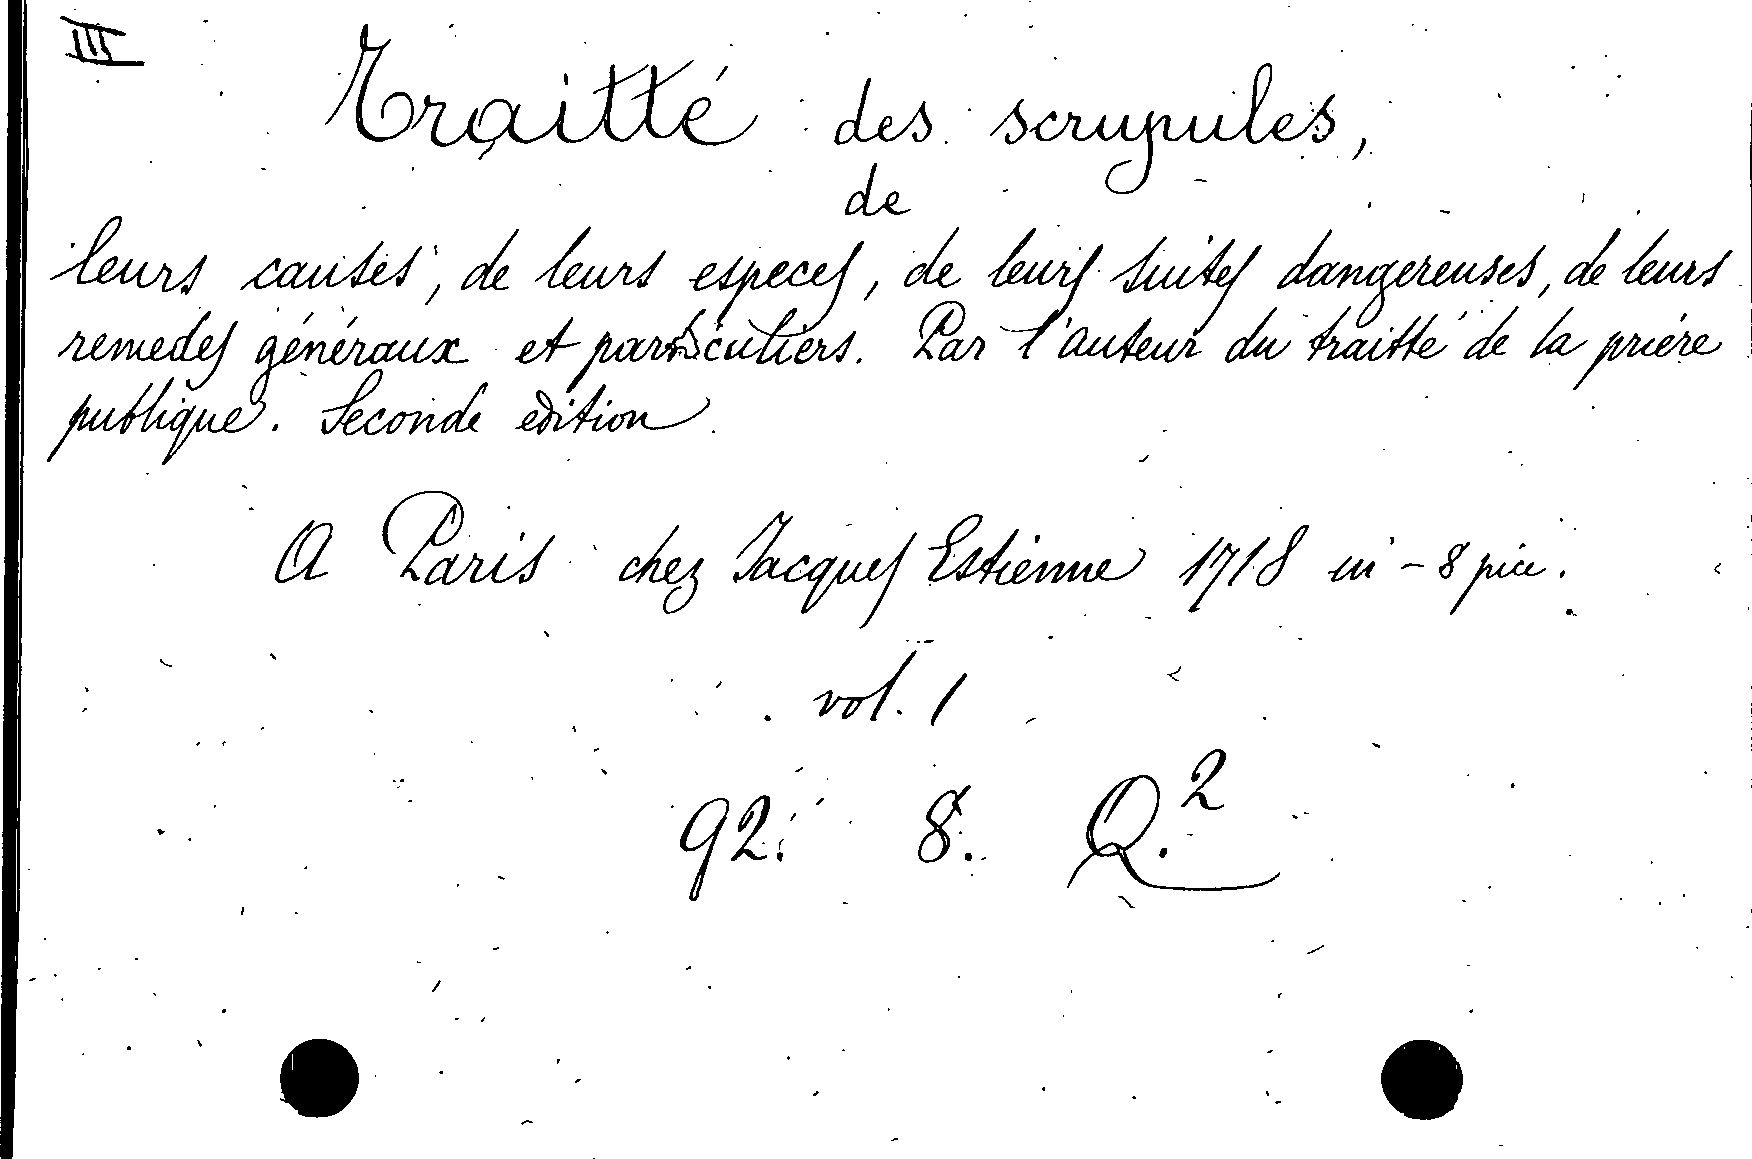 III
Traitté des scrupules,
de
leurs causes, de leurs especes, de leurs suites dangereuses, de leurs
remedes généraux et particuliers. Par l'auteur du traitté de la priére
publique. Seconde edition
A Paris chez Jacques Estienne 1718 in-8 picc.
vol. 1
92. 8. Q.2